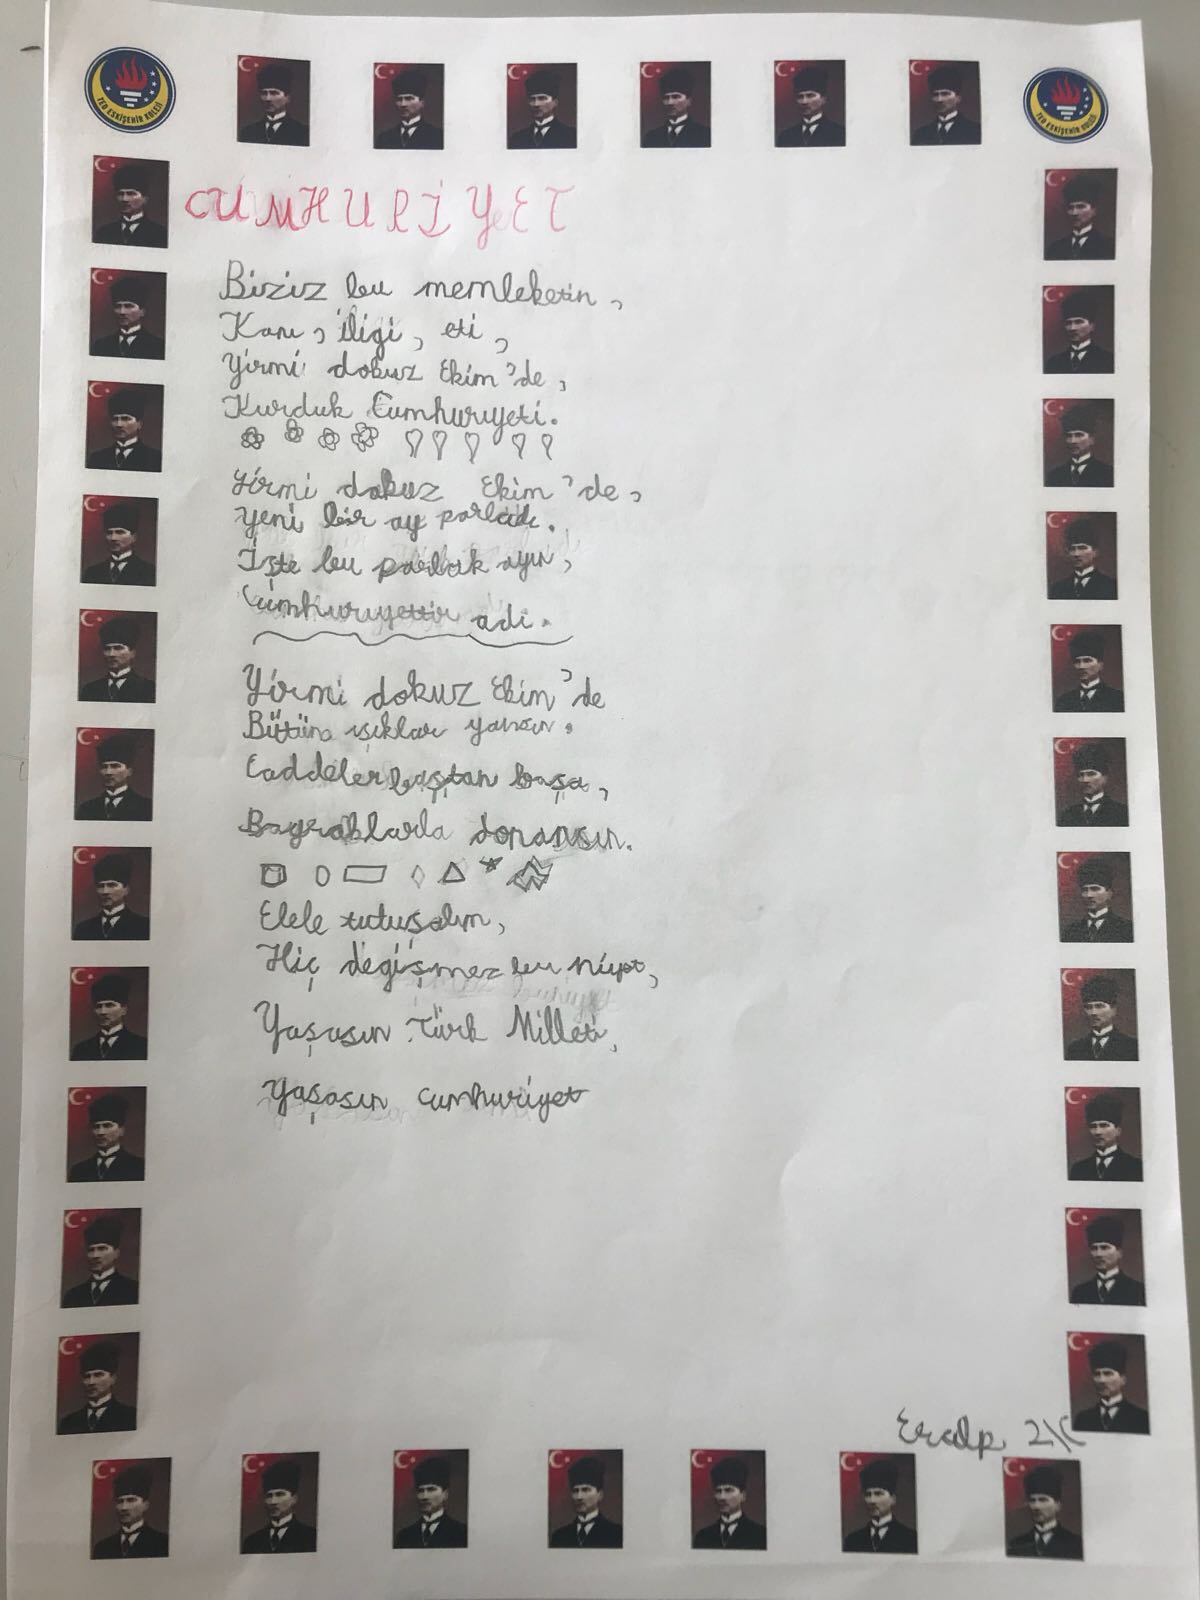 TED ESKİŞEHİR KOLEJİ
TED ESKİŞEHİR KOLEJİ
CUMHURİYET
Biziz bu memleketin,
Kanı, iligi, eti,
Yirmi dokuz Ekim'de,
Kurduk Cumhurıyeti.
Yirmi dokuz Ekim'de,
yeni bir ay parladı.
İşte bu parlak ayın,
Cumhurıyettir adi.
Yirmi dokuz Ekim'de
Bütün ışıklar yansın.
Caddeler baştan başa,
Bayraklarla donansın.
Elele tutuşalım,
Hiç degişmez bu niyet,
Yaşasın Türk Milleti,
Yaşasın cumhuriyet
Eralp 2\C